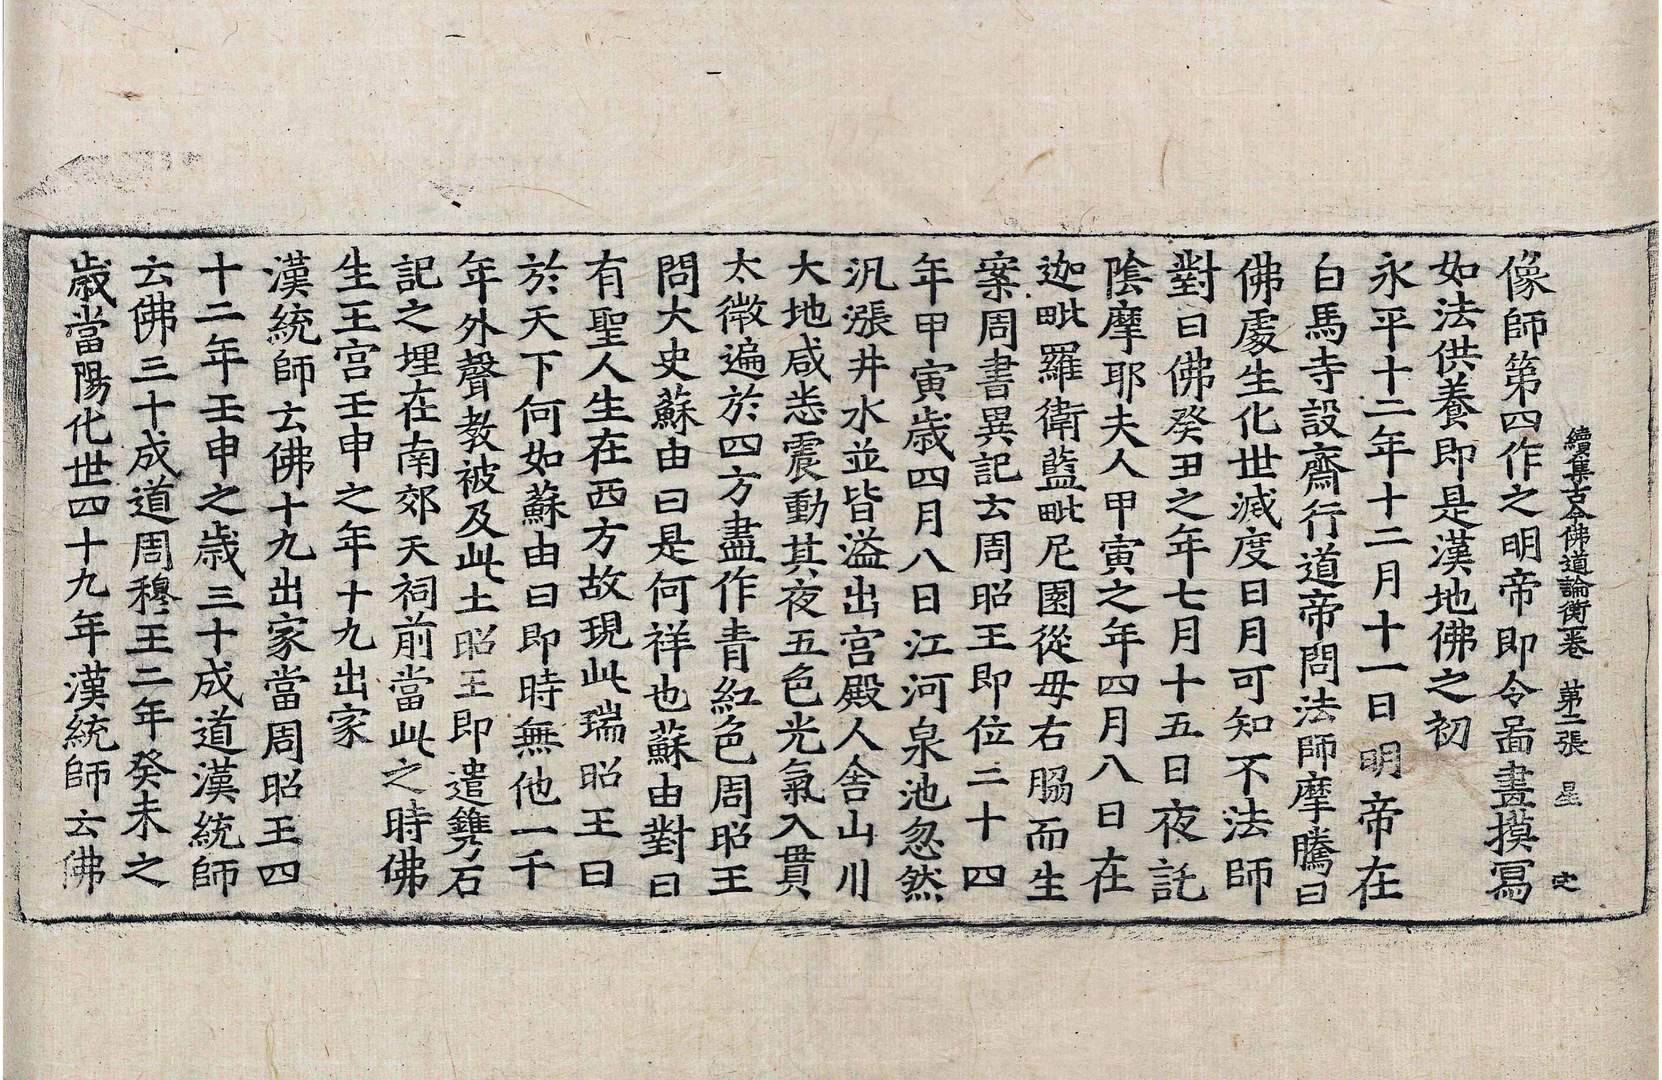 續集古今佛道論衡卷 第二張 星
像師第四作之明帝即令啚畫摸寫
如法供養即是漢地佛之初
永平十二年十二月十一日明帝在
白馬寺設齋行道帝問法師摩騰曰
佛處生化世滅度日月可知不法師
對曰佛癸丑之年七月十五日夜託
陰摩耶夫人甲寅之年四月八日在
迦毗羅衛藍毗尼園從母右脇而生
案周書異記云周昭王即位二十四
年甲寅歲四月八日江河泉池忽然
汎漲井水並皆溢出宮殿人舍山川
大地咸恙震動其夜五色光氣入貫
太微遍於四方盡作青紅色周昭王
問大史蘇由曰是何祥也蘇由對曰
有聖人生在西方故現此瑞昭王曰
於天下何如蘇由曰即時無他一千
年外聲教被及此土昭王即遣鐫石
記之埋在南郊天祠前當此之時佛
生王宮壬申之年十九出家
漢統師云佛十九出家當周昭王四
十二年壬申之歲三十成道漢統師
云佛三十成道周穆王二年癸未之
歲當陽化世四十九年漢統師云佛